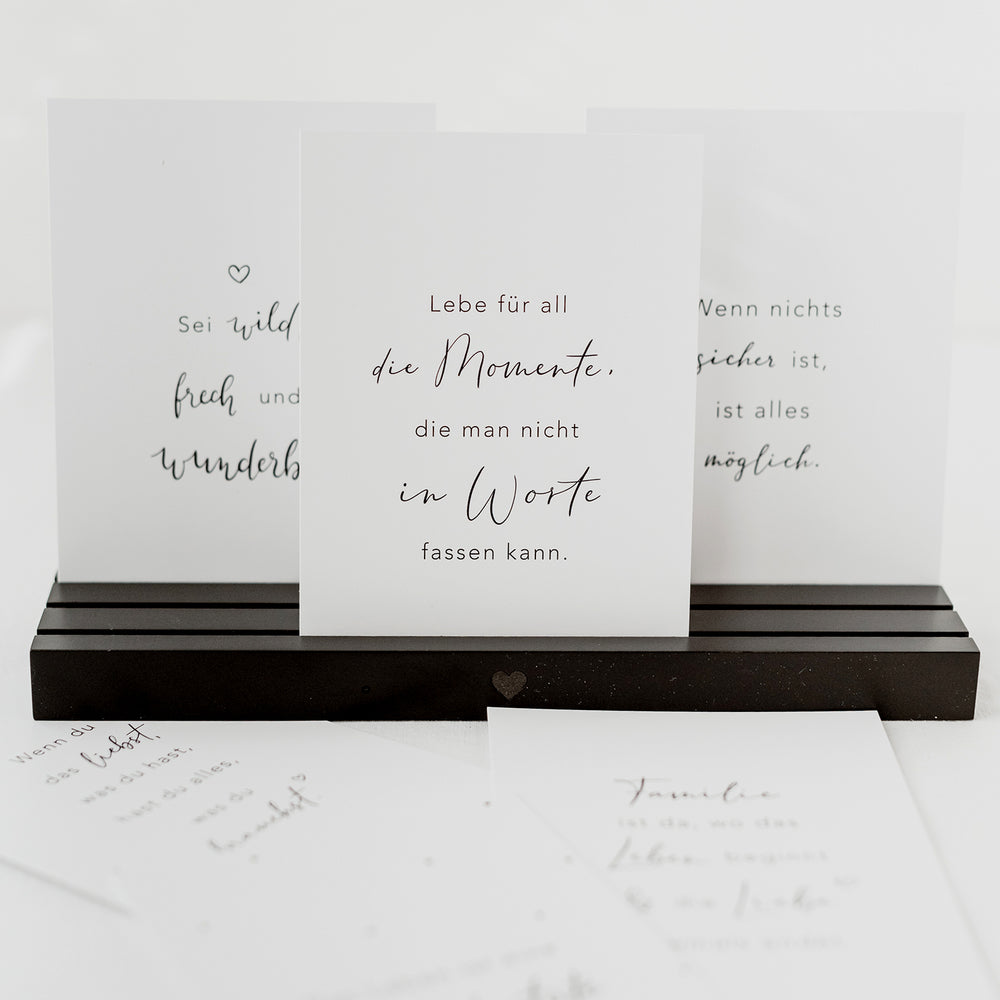 Sei wild,
frech und
wunderb
Lebe für all
die Momente,
die man nicht
in Worte
fassen kann.
Wenn nichts
sicher ist,
ist alles
möglich.
Wenn du
das liebst,
was du hast,
hast du alles,
was du
brauchst.
Familie
ist da, wo das
Leben beginnt
& die Liebe